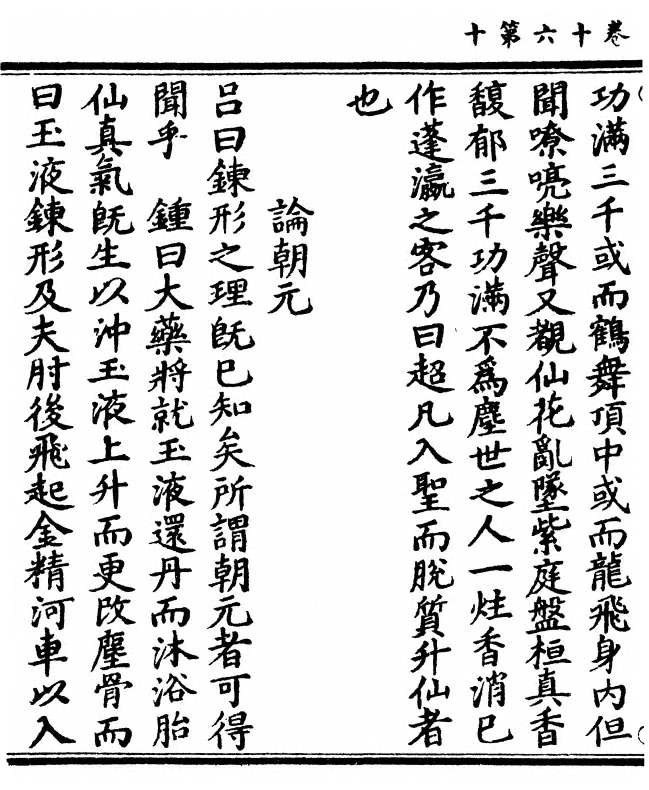 卷十六第十
功滿三千或而鶴舞頂中或而龍飛身內但
聞嘹喨樂聲又覩仙花亂墜紫庭盤桓真香
馥郁三千功滿不為塵世之人一炷香消已
作蓬瀛之客乃曰超凡入聖而脫質升仙者
也
論朝元
呂曰鍊形之理既已知矣所謂朝元者可得
聞乎　鍾曰大藥將就玉液還丹而沐浴胎
仙真氣既生以沖玉液上升而更改塵骨而
曰玉液鍊形及夫肘後飛起金精河車以入